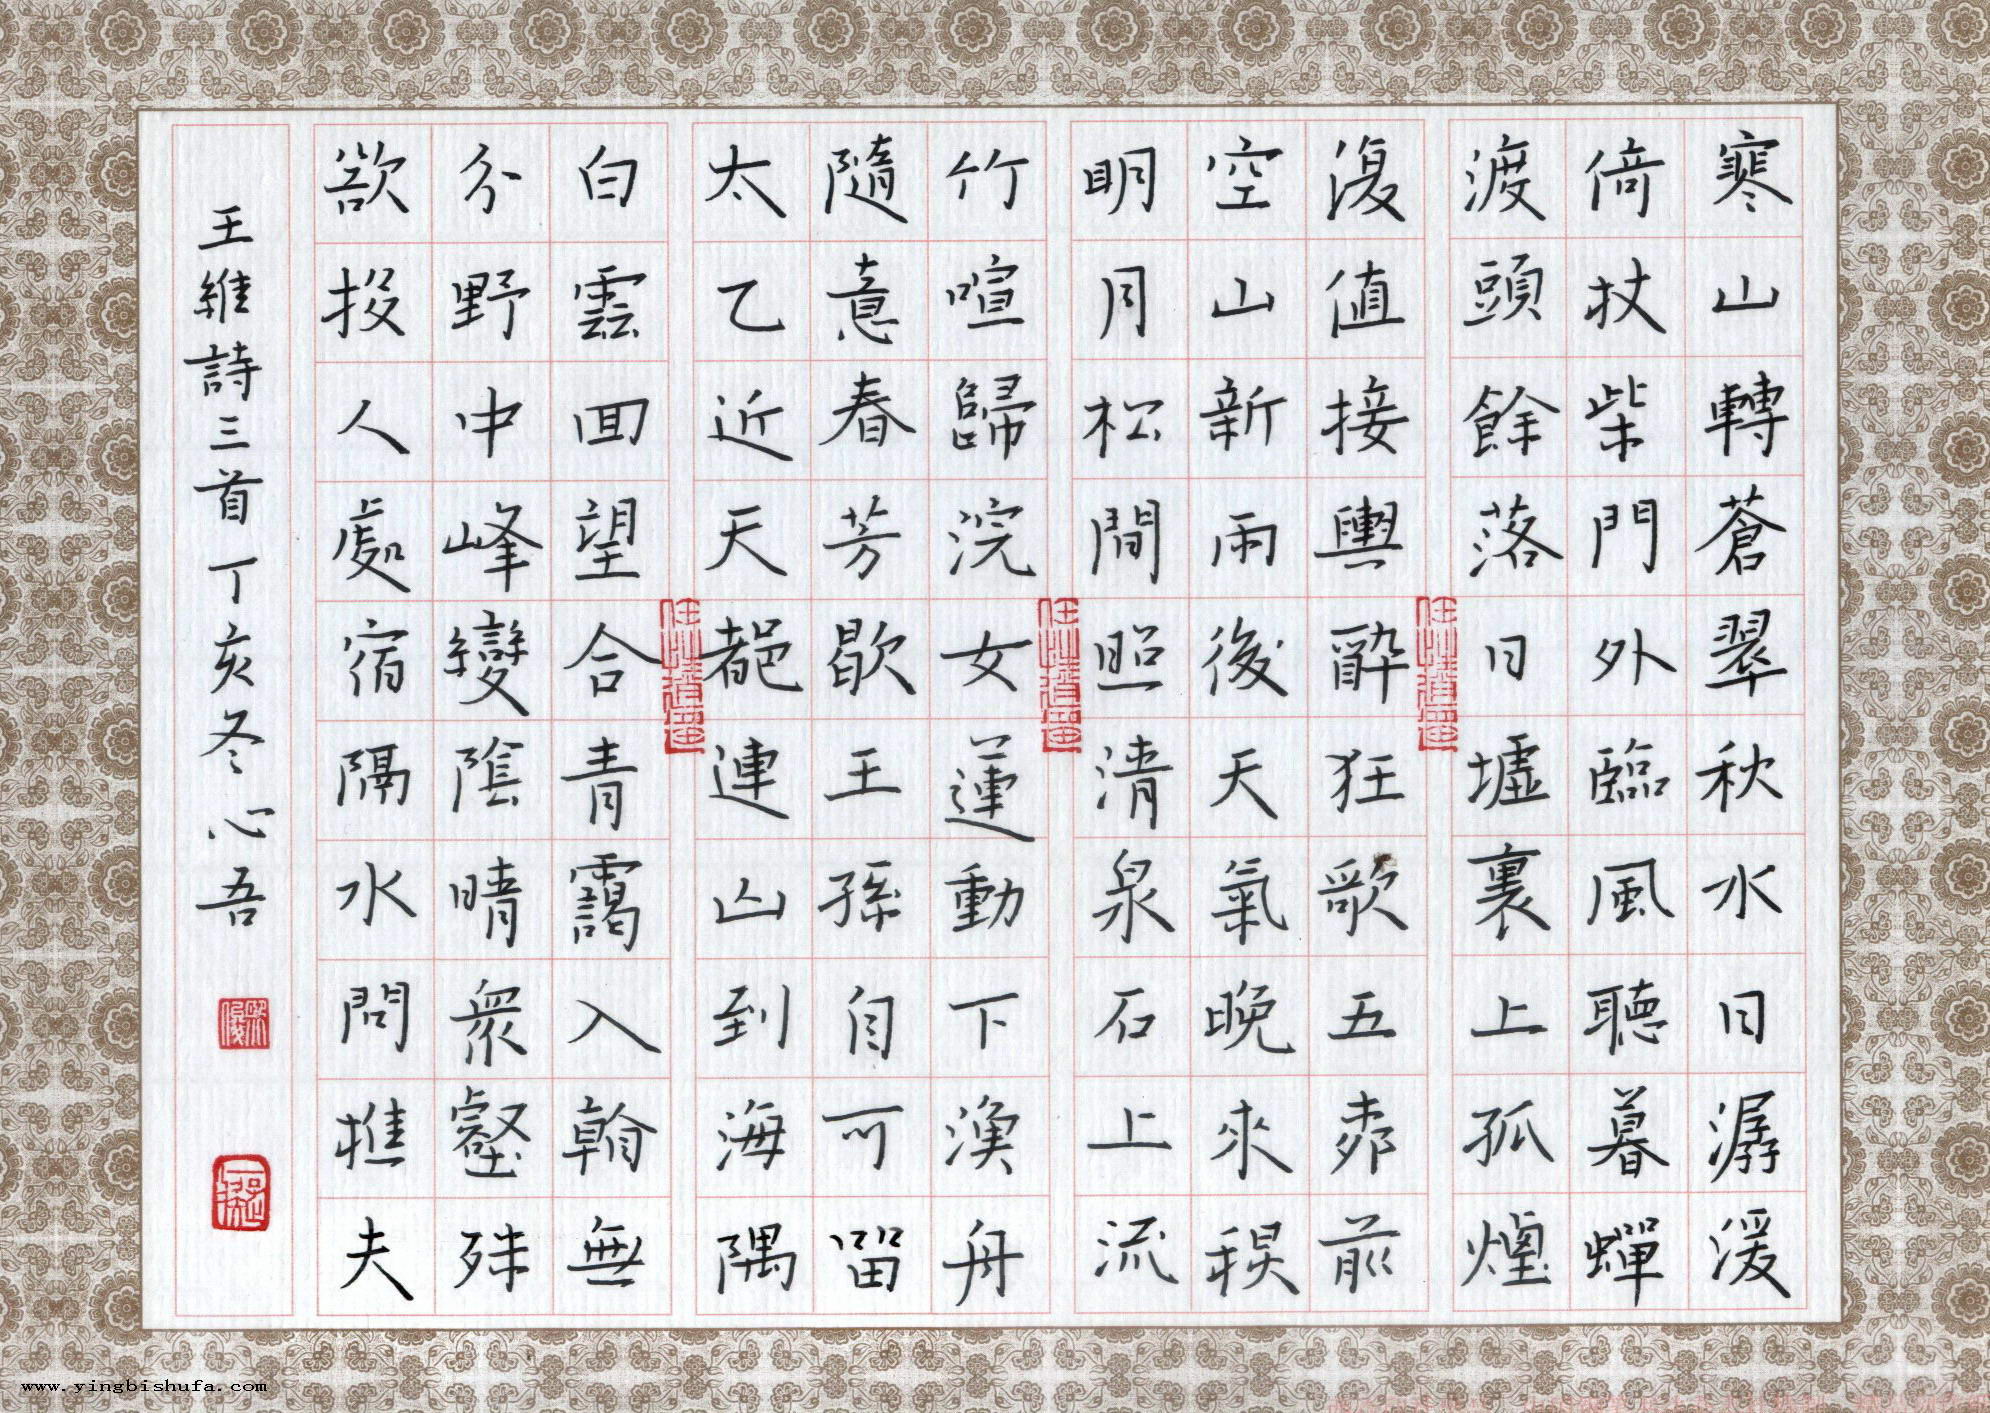 寒山轉蒼翠秋水日潺湲
倚杖柴門外臨風聽暮蟬
渡頭餘落日墟裏上孤煙
復值接輿醉狂歌五柳前
空山新雨後天氣晚來秋
明月松間照清泉石上流
竹喧歸浣女蓮動下漁舟
隨意春芳歇王孫自可留
太乙近天都連山到海隅
白雲回望合青靄入看無
分野中峰變陰晴衆壑殊
欲投人處宿隔水問樵夫
王維詩三首丁亥冬心吾
www.yingbishufa.com